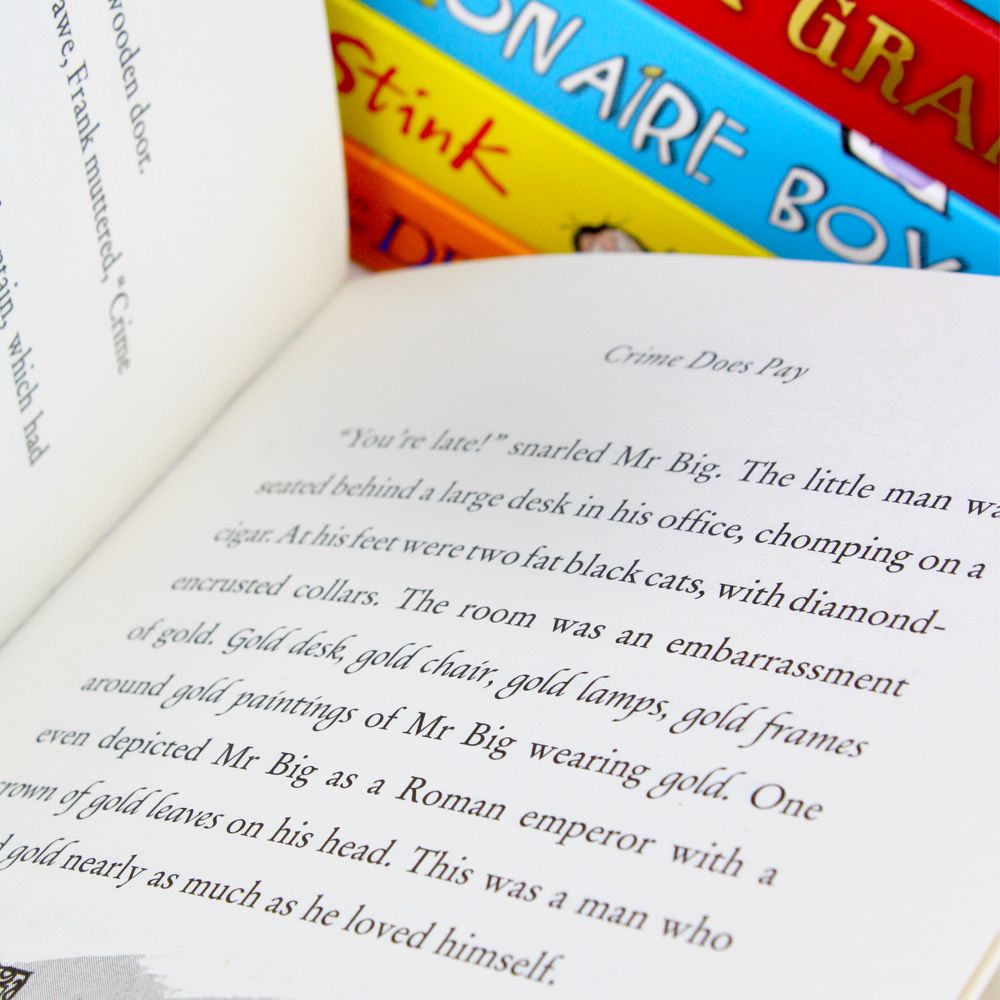 wooden door.
awe, Frank muttered, “Crime
which had
GRA
ONAIRE BOY
Stink
Crime Does Pay
“You’re late!” snarled Mr Big. The little man
seated behind a large desk in his office, chomping on a
cigar. At his feet were two fat black cats, with diamond-
encrusted collars. The room was an embarrassment
of gold. Gold desk, gold chair, gold lamps, gold frames
around gold paintings of Mr Big wearing gold. One
even depicted Mr Big as a Roman emperor with a
crown of gold leaves on his head. This was a man who
gold nearly as much as he loved himself.